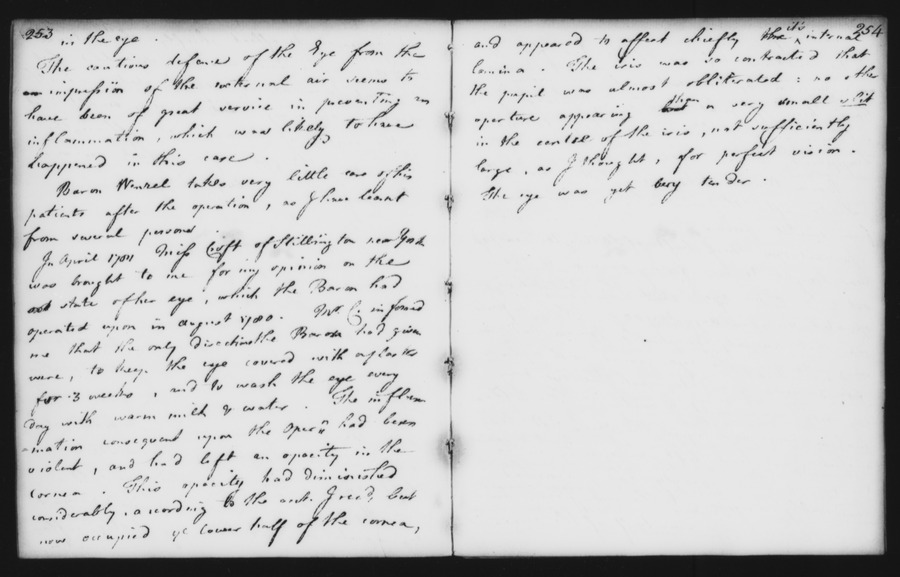 253
in the eye.
The cautious defence of the Eye from the
impression of the external air seems to
have been of great service in preventing an
inflammation, which was likely to have
happened in this case.
Baron Wenzel takes very little care of his
patients after the operation, as I have learnt
from several persons.
In April 1781 Miss Croft of Stillington near York
was brought to me for my opinion on the
state of her eye, which the Baron had
operated upon in august 1780. Mr. C. informed
me that the only directions the Baron had given
were, to keep the eye covered with a plaster
for 3 weeks, and to wash the eye every
day with warm milk & water. The inflam-
mation consequent upon the Opern had been
violent, and had left an opacity in the
cornea. This opacity had diminished
considerably, according to the acct. I recd, but
now occupied ye lower half of the cornea,
254
and appeared to affect chiefly its internal
lamina. The iris was so contracted that
the pupil was almost obliterated: no other
aperture appearing than a very small slit
in the center of the iris, not sufficiently
large, as I thought, for perfect vision.
The eye was yet very tender.